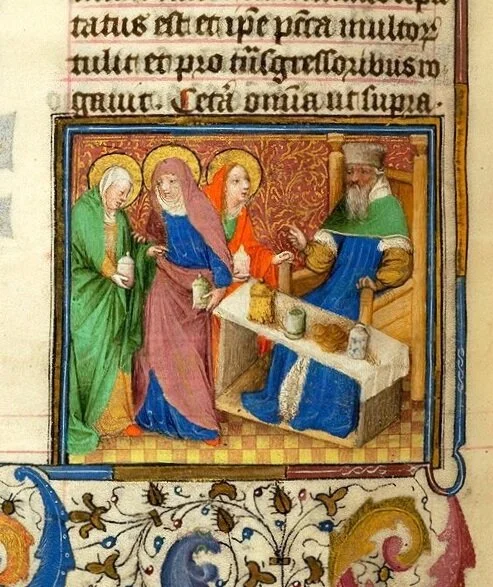 tatus est et ip̄e pc̄ca multoꝝ
tulit et pro tn̄sgressoribus ro
gauit. Cetā om̄ia ut supra.